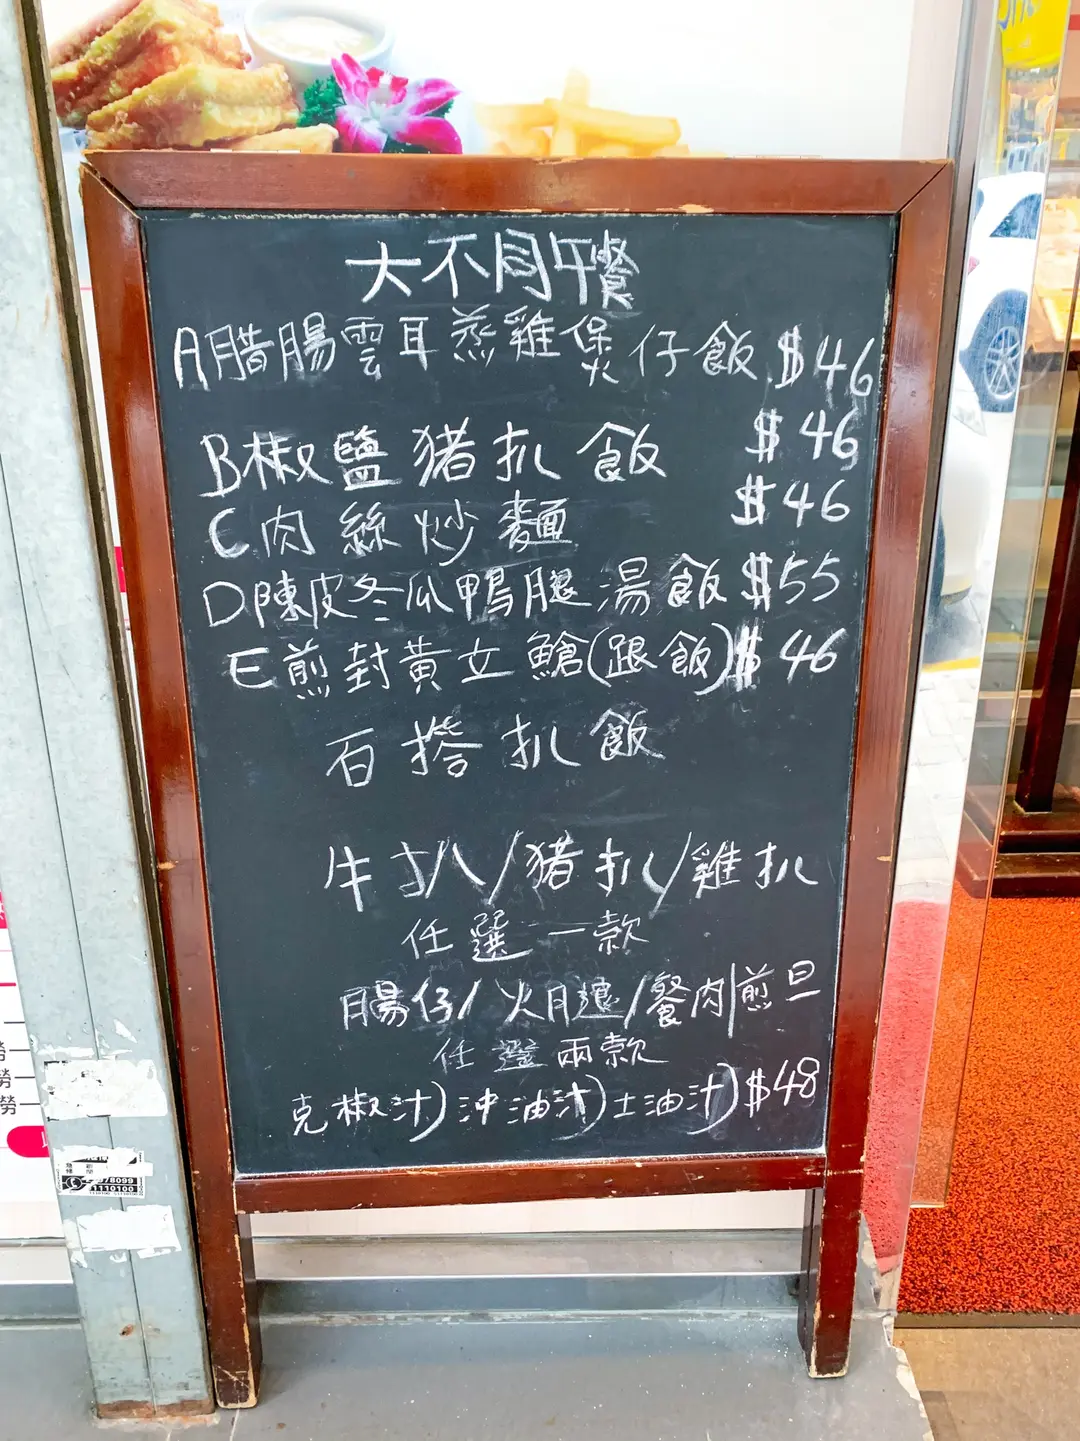 大不同午餐
A腊腸雲耳蒸雞煲仔飯 $46
B椒鹽豬扒飯 $46
C肉絲炒麵 $46
D陳皮冬瓜鴨腿湯飯 $55
E煎封黃立鱠(跟飯) $46
石撘扒飯
牛扒/豬扒/雞扒
任選一款
腸仔/火腿/餐肉/煎旦
任選兩款
克椒汁)沖油汁)士油汁) $48
78099
1110100
勞
勞
勞